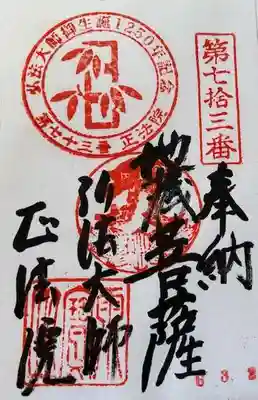 第七拾三番
奉納
地蔵菩薩
弘法大師
正法院
弘法大師御生誕1250年記念
第七十三番 正法院
6.3.2